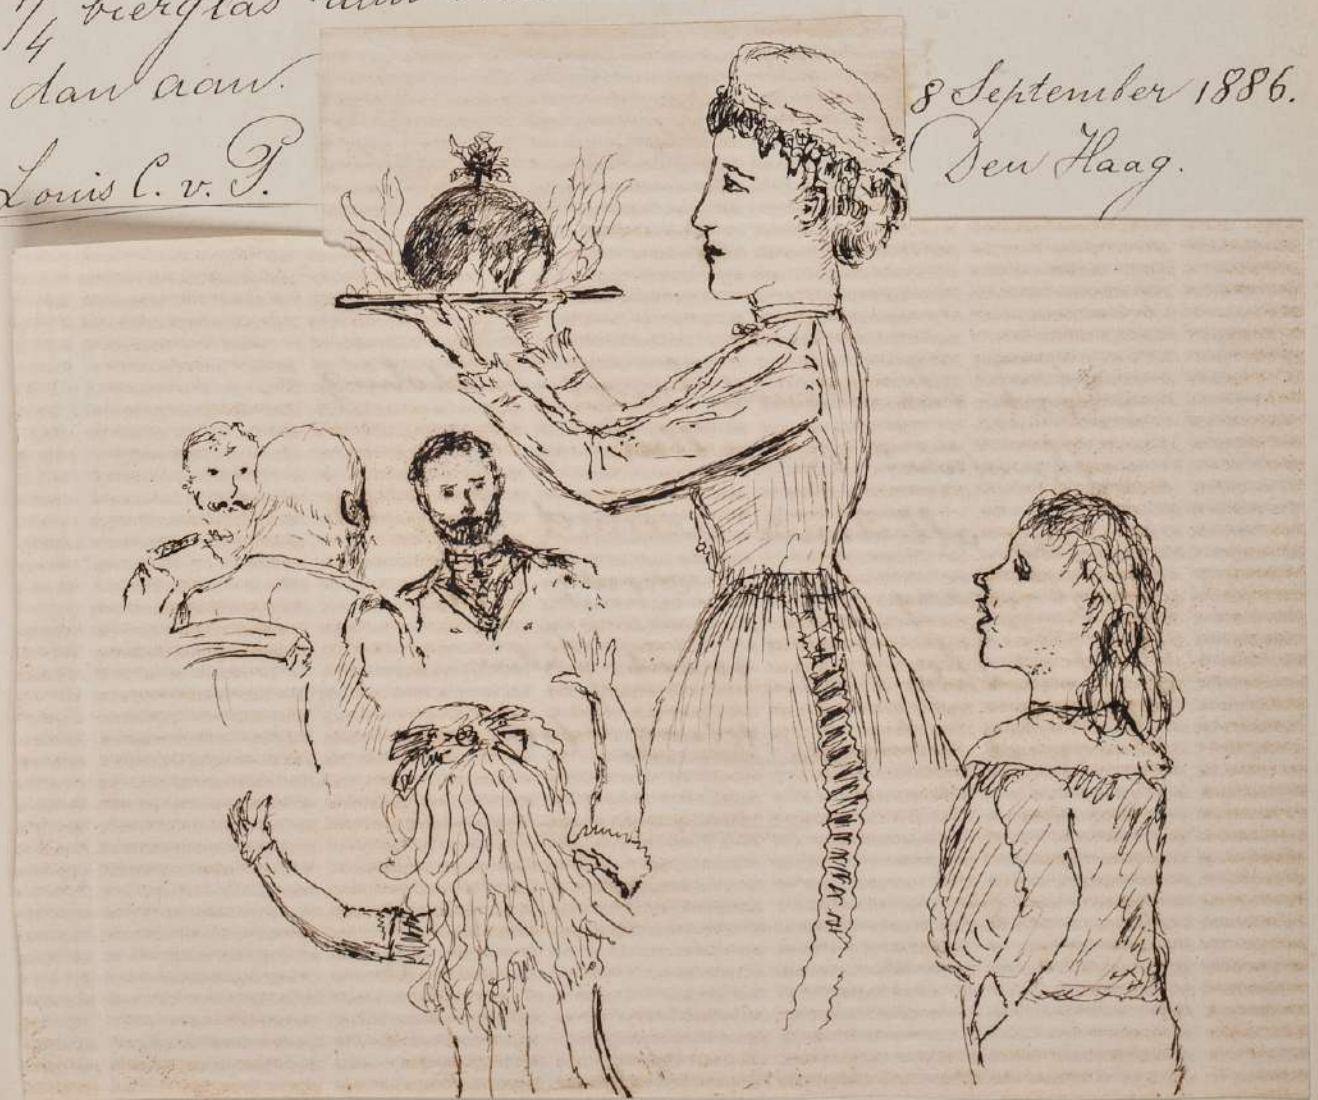 1/4 bierglas
dan aan.
Louis C. v. P.
8 September 1886.
Den Haag.